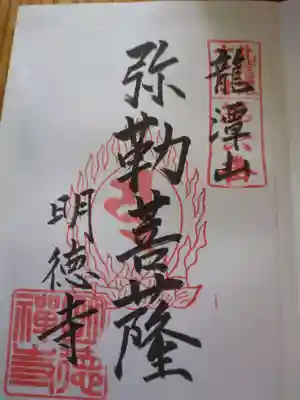 龍潭山
弥勒菩薩
明徳寺